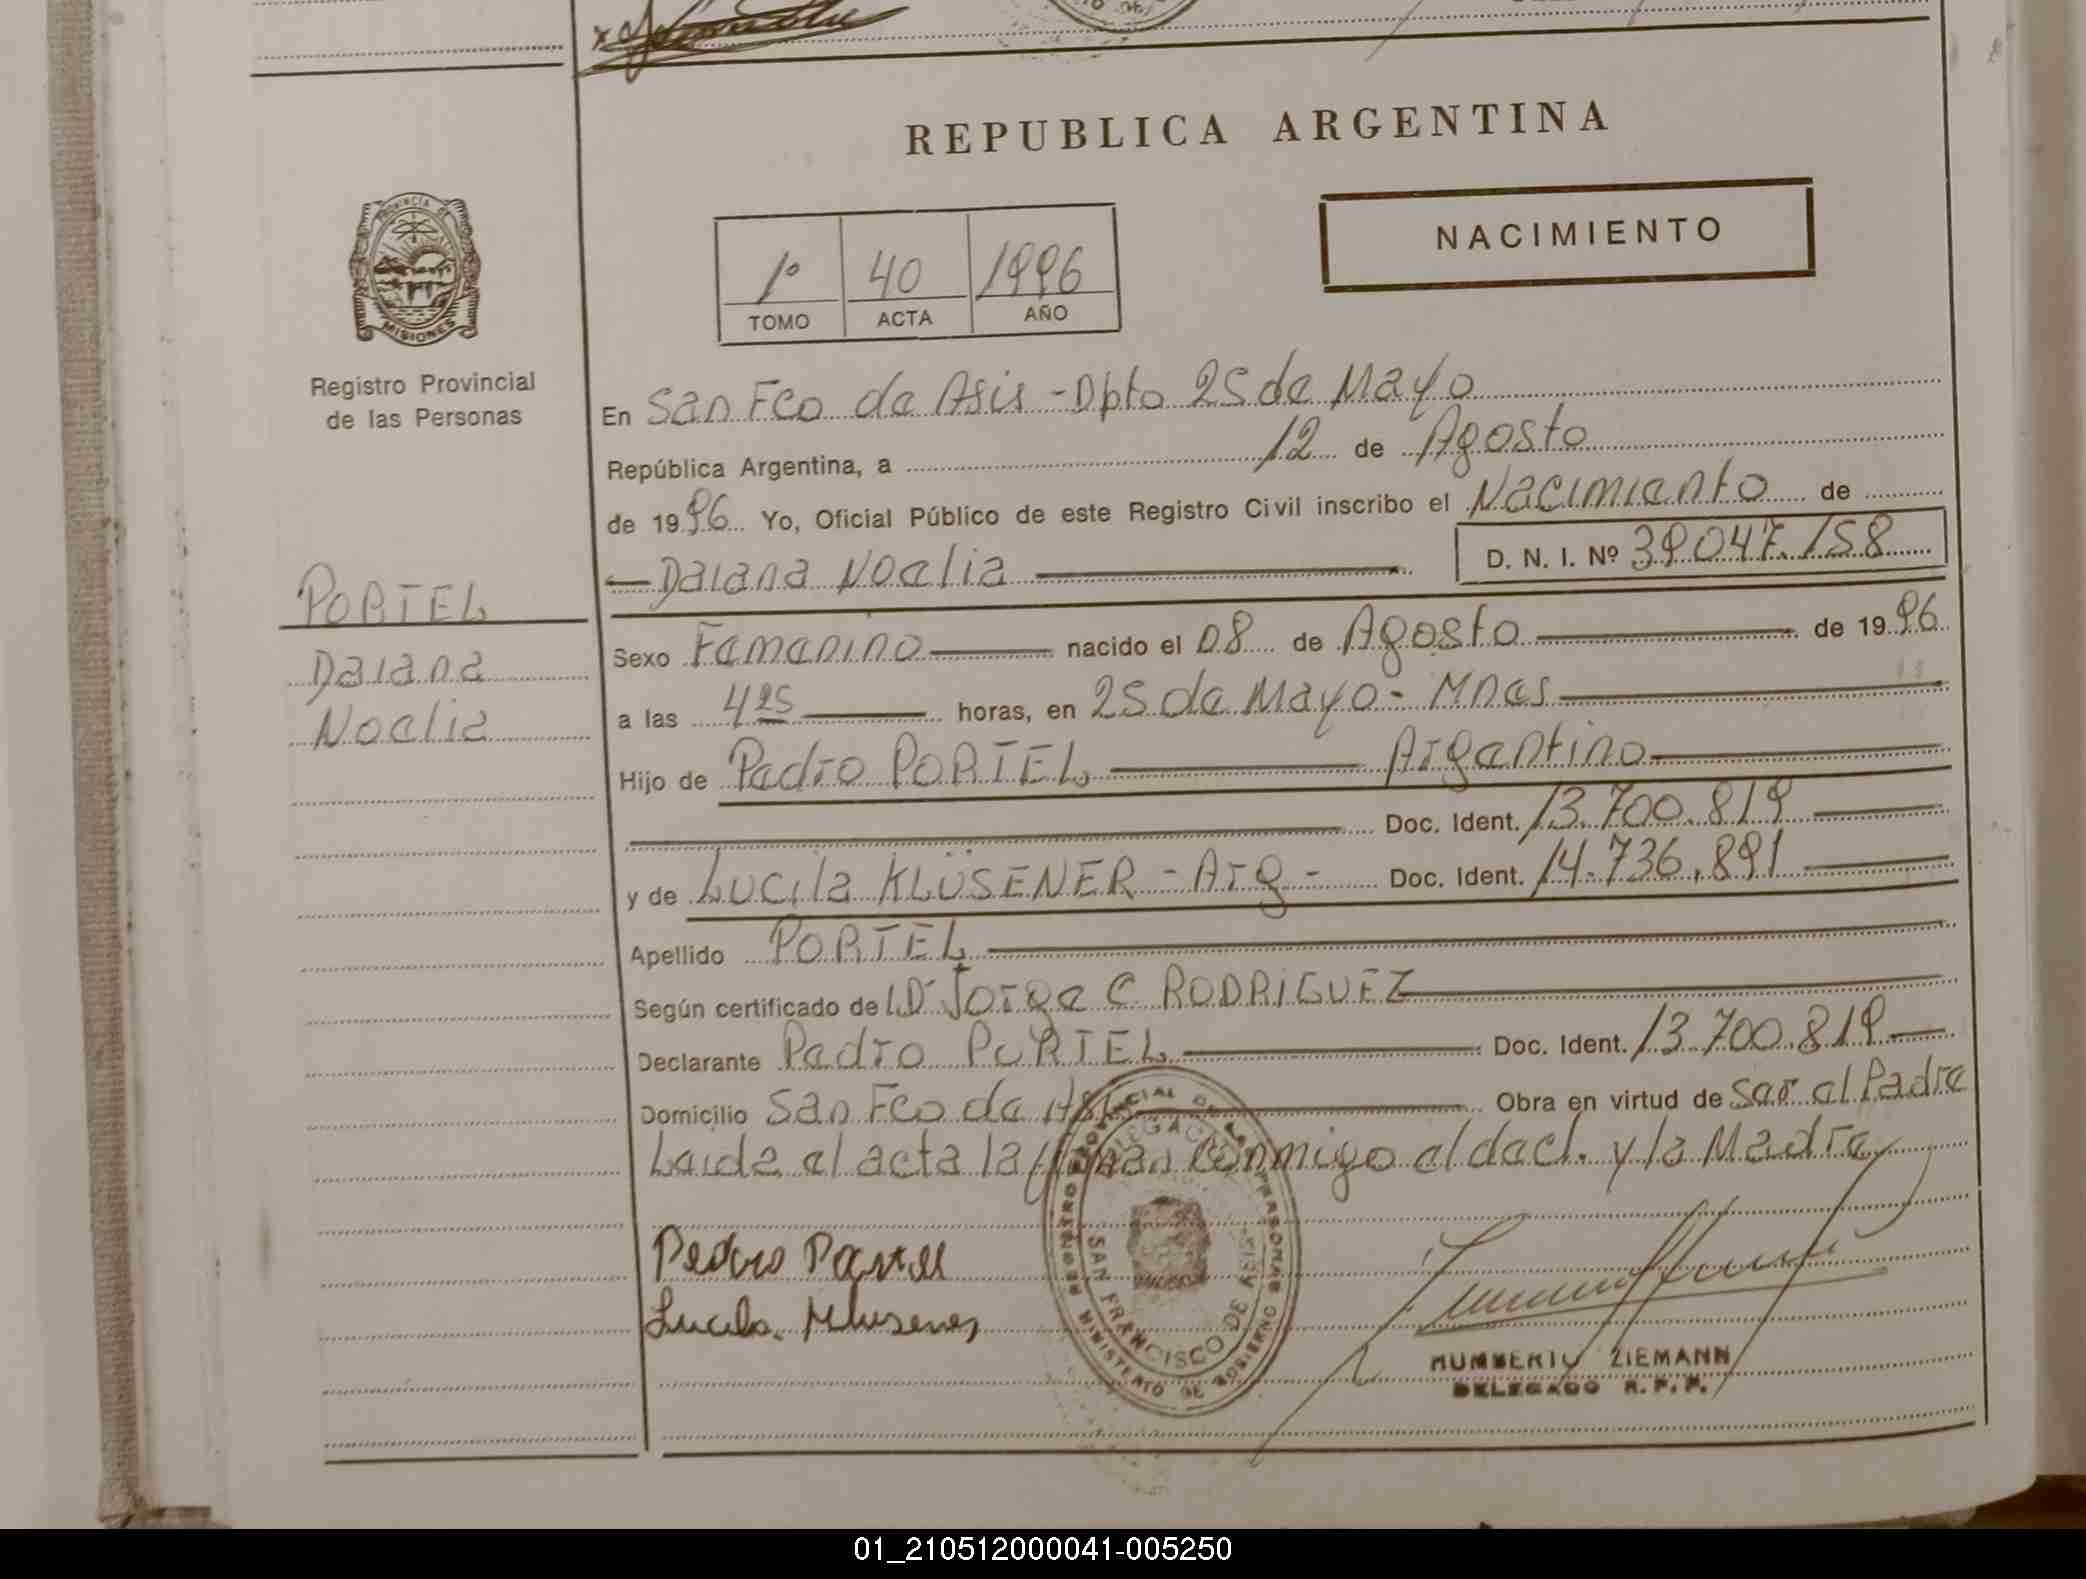 REPUBLICA ARGENTINA
NACIMIENTO
1º 40 1996
TOMO ACTA AÑO
PROVINCIA DE
MISIONES
Registro Provincial
de las Personas
PORTEL
Daiana
Noelia
En San Fco de Asis - Dpto 25 de Mayo
República Argentina, a 12 de Agosto
de 1996 Yo, Oficial Público de este Registro Civil inscribo el Nacimiento de
Daiana Noelia D. N. I. Nº 39.047.158
Sexo Femenino nacido el 08 de Agosto de 1996
a las 4 25 horas, en 25 de Mayo - Mnes
Hijo de Pedro PORTEL Argentino
Doc. Ident. 13.700.819
y de Lucila KLÜSENER - Arg - Doc. Ident. 14.736.891
Apellido PORTEL
Según certificado de Jorge C RODRIGUEZ
Declarante Pedro PORTEL Doc. Ident. 13.700.819
Domicilio San Fco de Asis Obra en virtud de Ser el Padre
Leida el acta la firman conmigo el decl. y la Madre
Pedro Portel
Lucila Klusener
REGISTRO PROVINCIAL DE LAS PERSONAS
MINISTERIO DE GOBIERNO
DELEGACION
SAN FRANCISCO DE ASIS
HUMBERTO ZIEMANN
DELEGADO R. P. P.
01_210512000041-005250